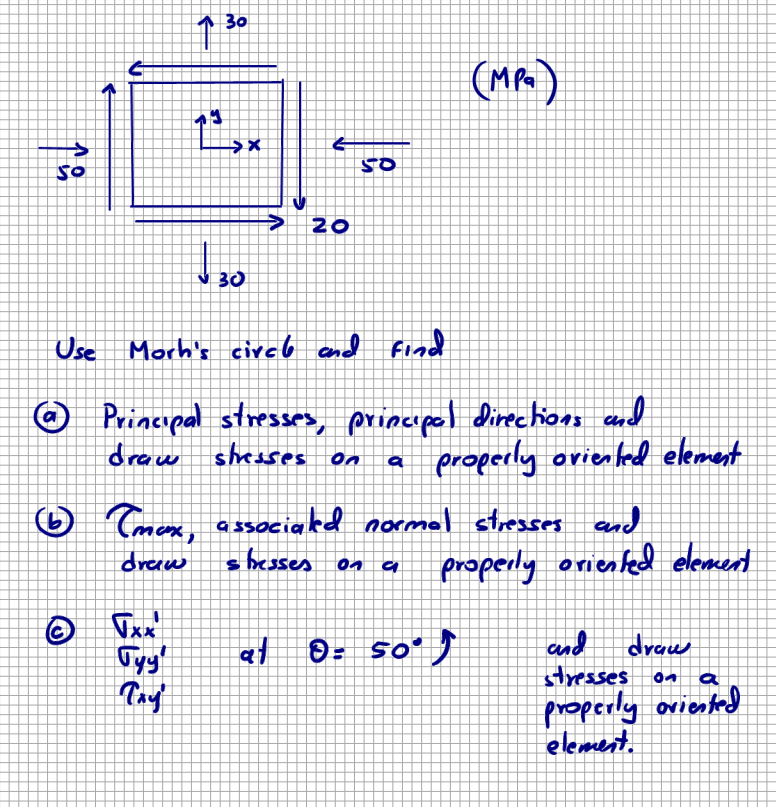 30
(MPa)
y
x
50
50
20
30
Use Morh's circle and find
(a) Principal stresses, principal directions and
draw stresses on a properly oriented element
(b) τmax, associated normal stresses and
draw stresses on a properly oriented element
(c) σxx'
σyy' at θ = 50°
τxy'
and draw
stresses on a
properly oriented
element.